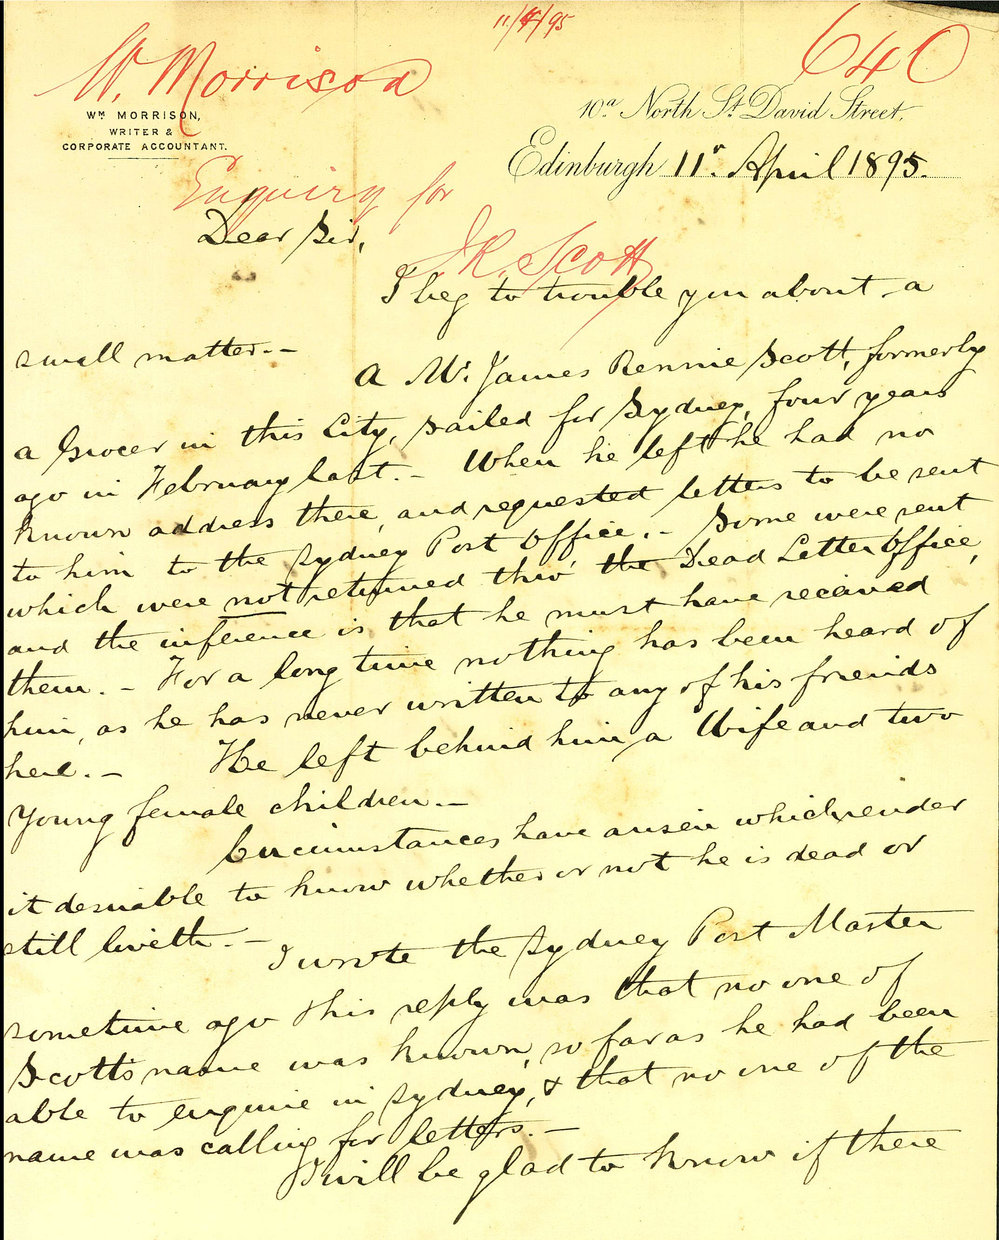 11/4/95
640
W. Morrison
Wm MORRISON,
WRITER &
CORPORATE ACCOUNTANT.
10a North St David Street.
Edinburgh 11r. April 1895.
Enquiry for
J R. Scott
Dear Sir,
I beg to trouble you about a
small matter.-
A Mr. James Rennie Scott, formerly
a Grocer in this City, sailed for Sydney, four years
ago in February last.- When he left he had no
known address there, and requested letters to be sent
to him to the Sydney Post Office.- Some were sent
which were not returned thro' the Dead Letter Office,
and the inference is that he must have received
them.- For a long time nothing has been heard of
him, as he has never written to any of his friends
here.- He left behind him a Wife and two
Young female children.-
Circumstances have arisen which render
it desirable to know whether or not he is dead or
still liveth.-
I wrote the Sydney Post Master
sometime ago & his reply was that no one of
Scott's name was known, so far as he had been
able to enquire in Sydney, & that no one of the
name was calling for letters.-
I will be glad to know if there